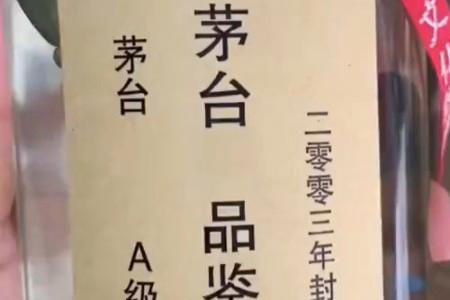 二零零三年封
茅台 品鉴
茅台 A级